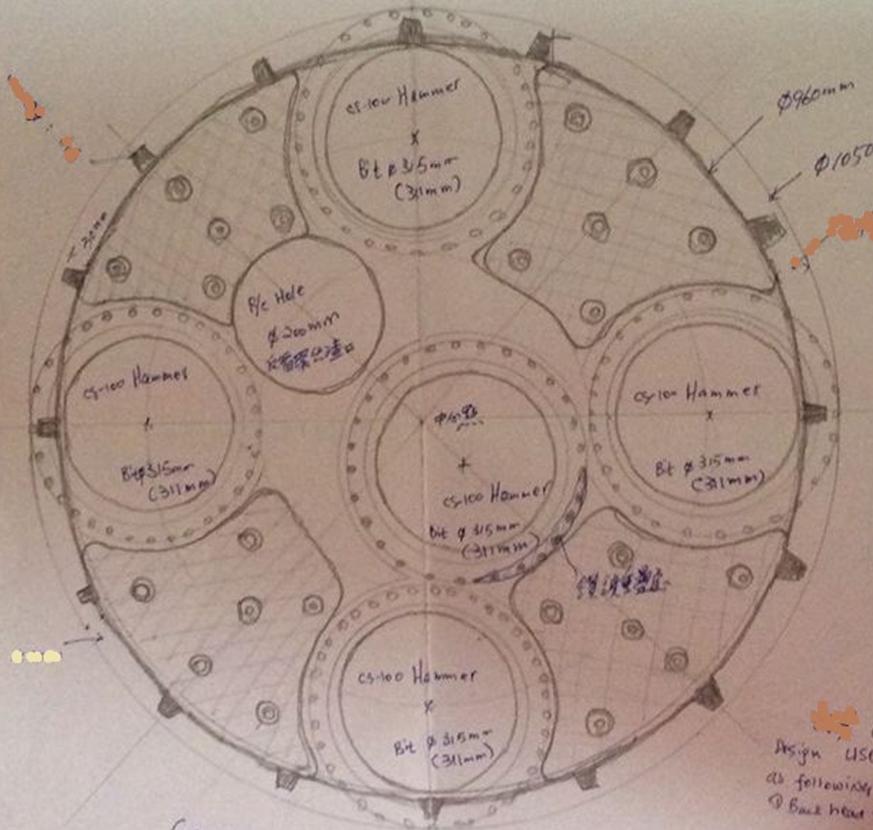 CS-100 Hammer
Bit ø 315mm
(311mm)
Ø960mm
Ø1050
30mm
R/c Hole
ø 200mm
反循環出渣口
CS-100 Hammer
Bit ø 315mm
(311mm)
中心點
CS-100 Hammer
Bit ø 315mm
(311mm)
CS-100 Hammer
Bit ø 315mm
(311mm)
CS-100 Hammer
Bit ø 315mm
(311mm)
Design USE
as following
① Back head